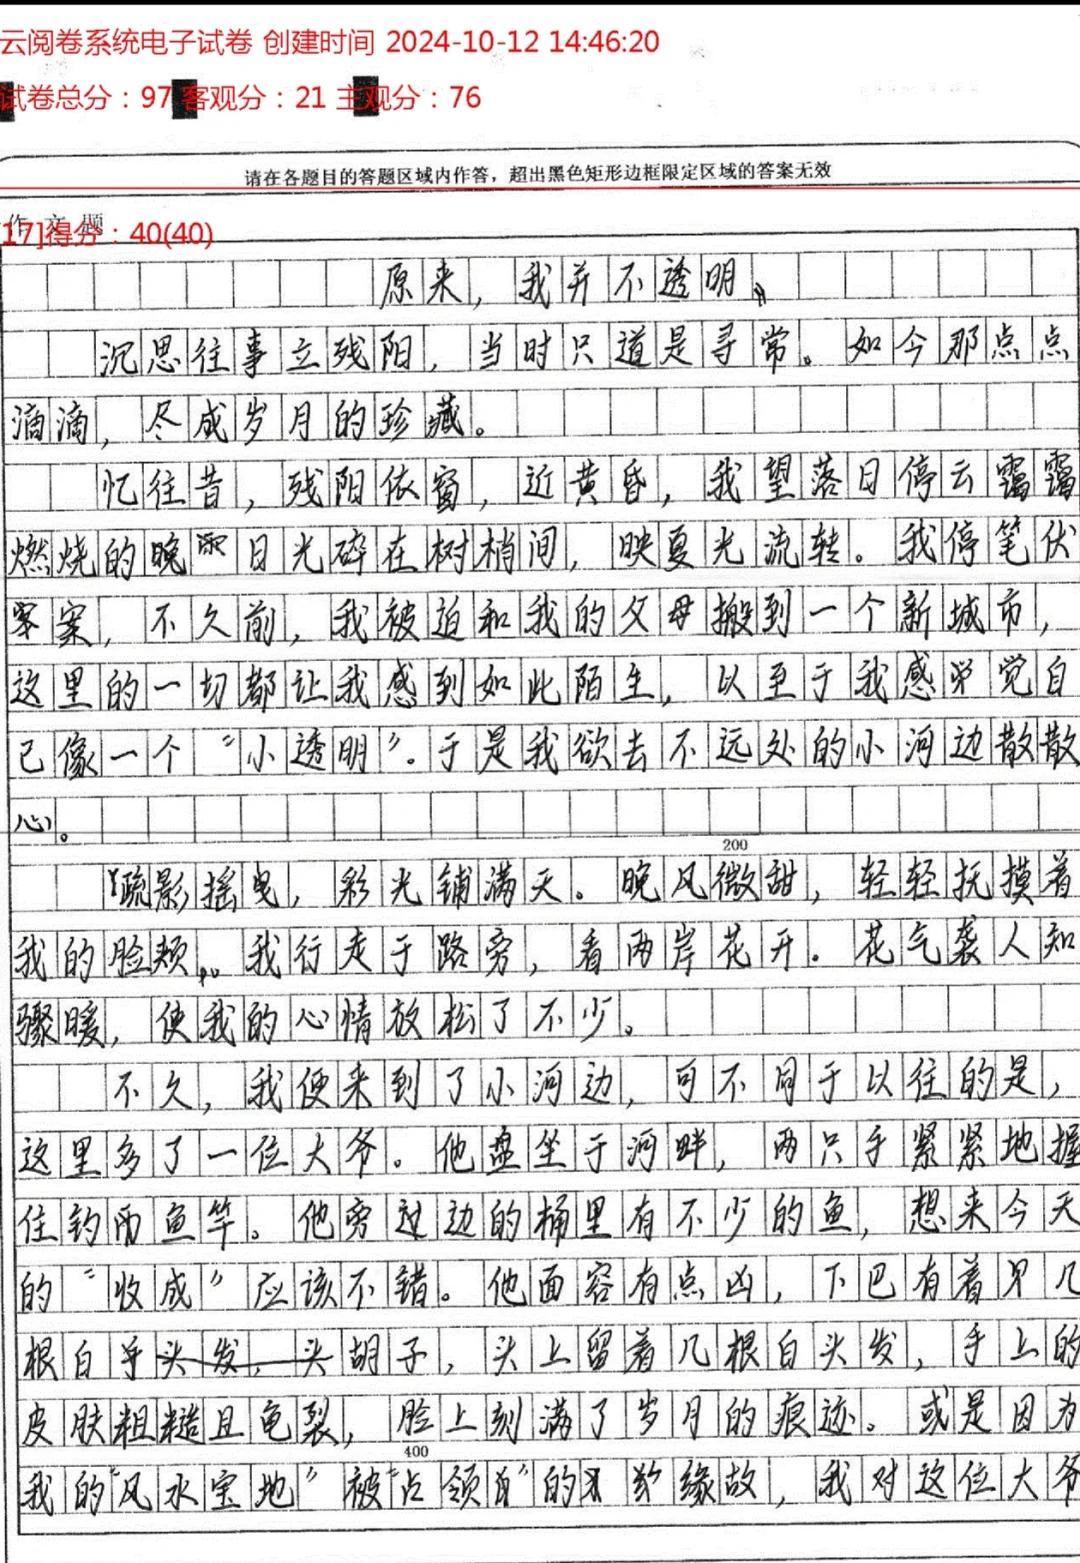 云阅卷系统电子试卷 创建时间 2024-10-12 14:46:20
试卷总分：97 客观分：21 主观分：76
请在各题目的答题区域内作答，超出黑色矩形边框限定区域的答案无效
作文题
[17]得分：40(40)
原来，我并不透明。
沉思往事立残阳，当时只道是寻常。如今那点点
滴滴，尽成岁月的珍藏。
忆往昔，残阳依窗，近黄昏，我望落日停云霭霭
燃烧的晚 日光碎在树梢间，映夏光流转。我停笔伏
案，不久前，我被迫和我的父母搬到一个新城市，
这里的一切都让我感到如此陌生，以至于我感觉自
己像一个“小透明”。于是我欲去不远处的小河边散散
心。
200
疏影摇曳，彩光铺满天。晚风微甜，轻轻抚摸着
我的脸颊。我行走于路旁，看两岸花开。花气袭人知
骤暖，使我的心情放松了不少。
不久，我便来到了小河边，可不同于以往的是，
这里多了一位大爷。他盘坐于河畔，两只手紧紧地握
住钓鱼竿。他旁边的桶里有不少的鱼，想来今天
的“收成”应该不错。他面容有点凶，下巴有着几
根白胡子，头上留着几根白头发，手上的
皮肤粗糙且龟裂，脸上刻满了岁月的痕迹。或是因为
400
我的“风水宝地”被“占领”的缘故，我对这位大爷